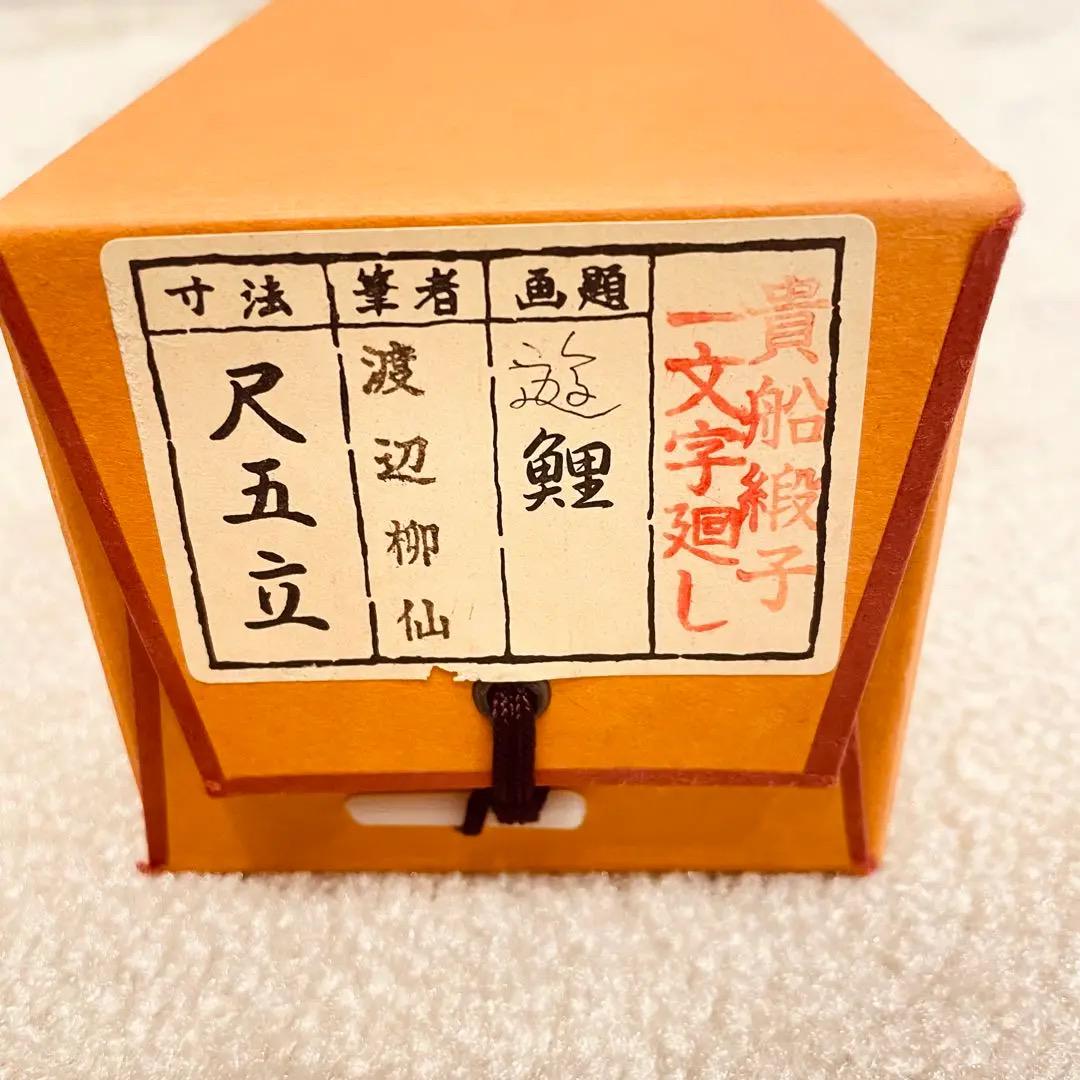 貴船緞子
一文字廻し
画題
遊鯉
筆者
渡辺柳仙
寸法
尺五立